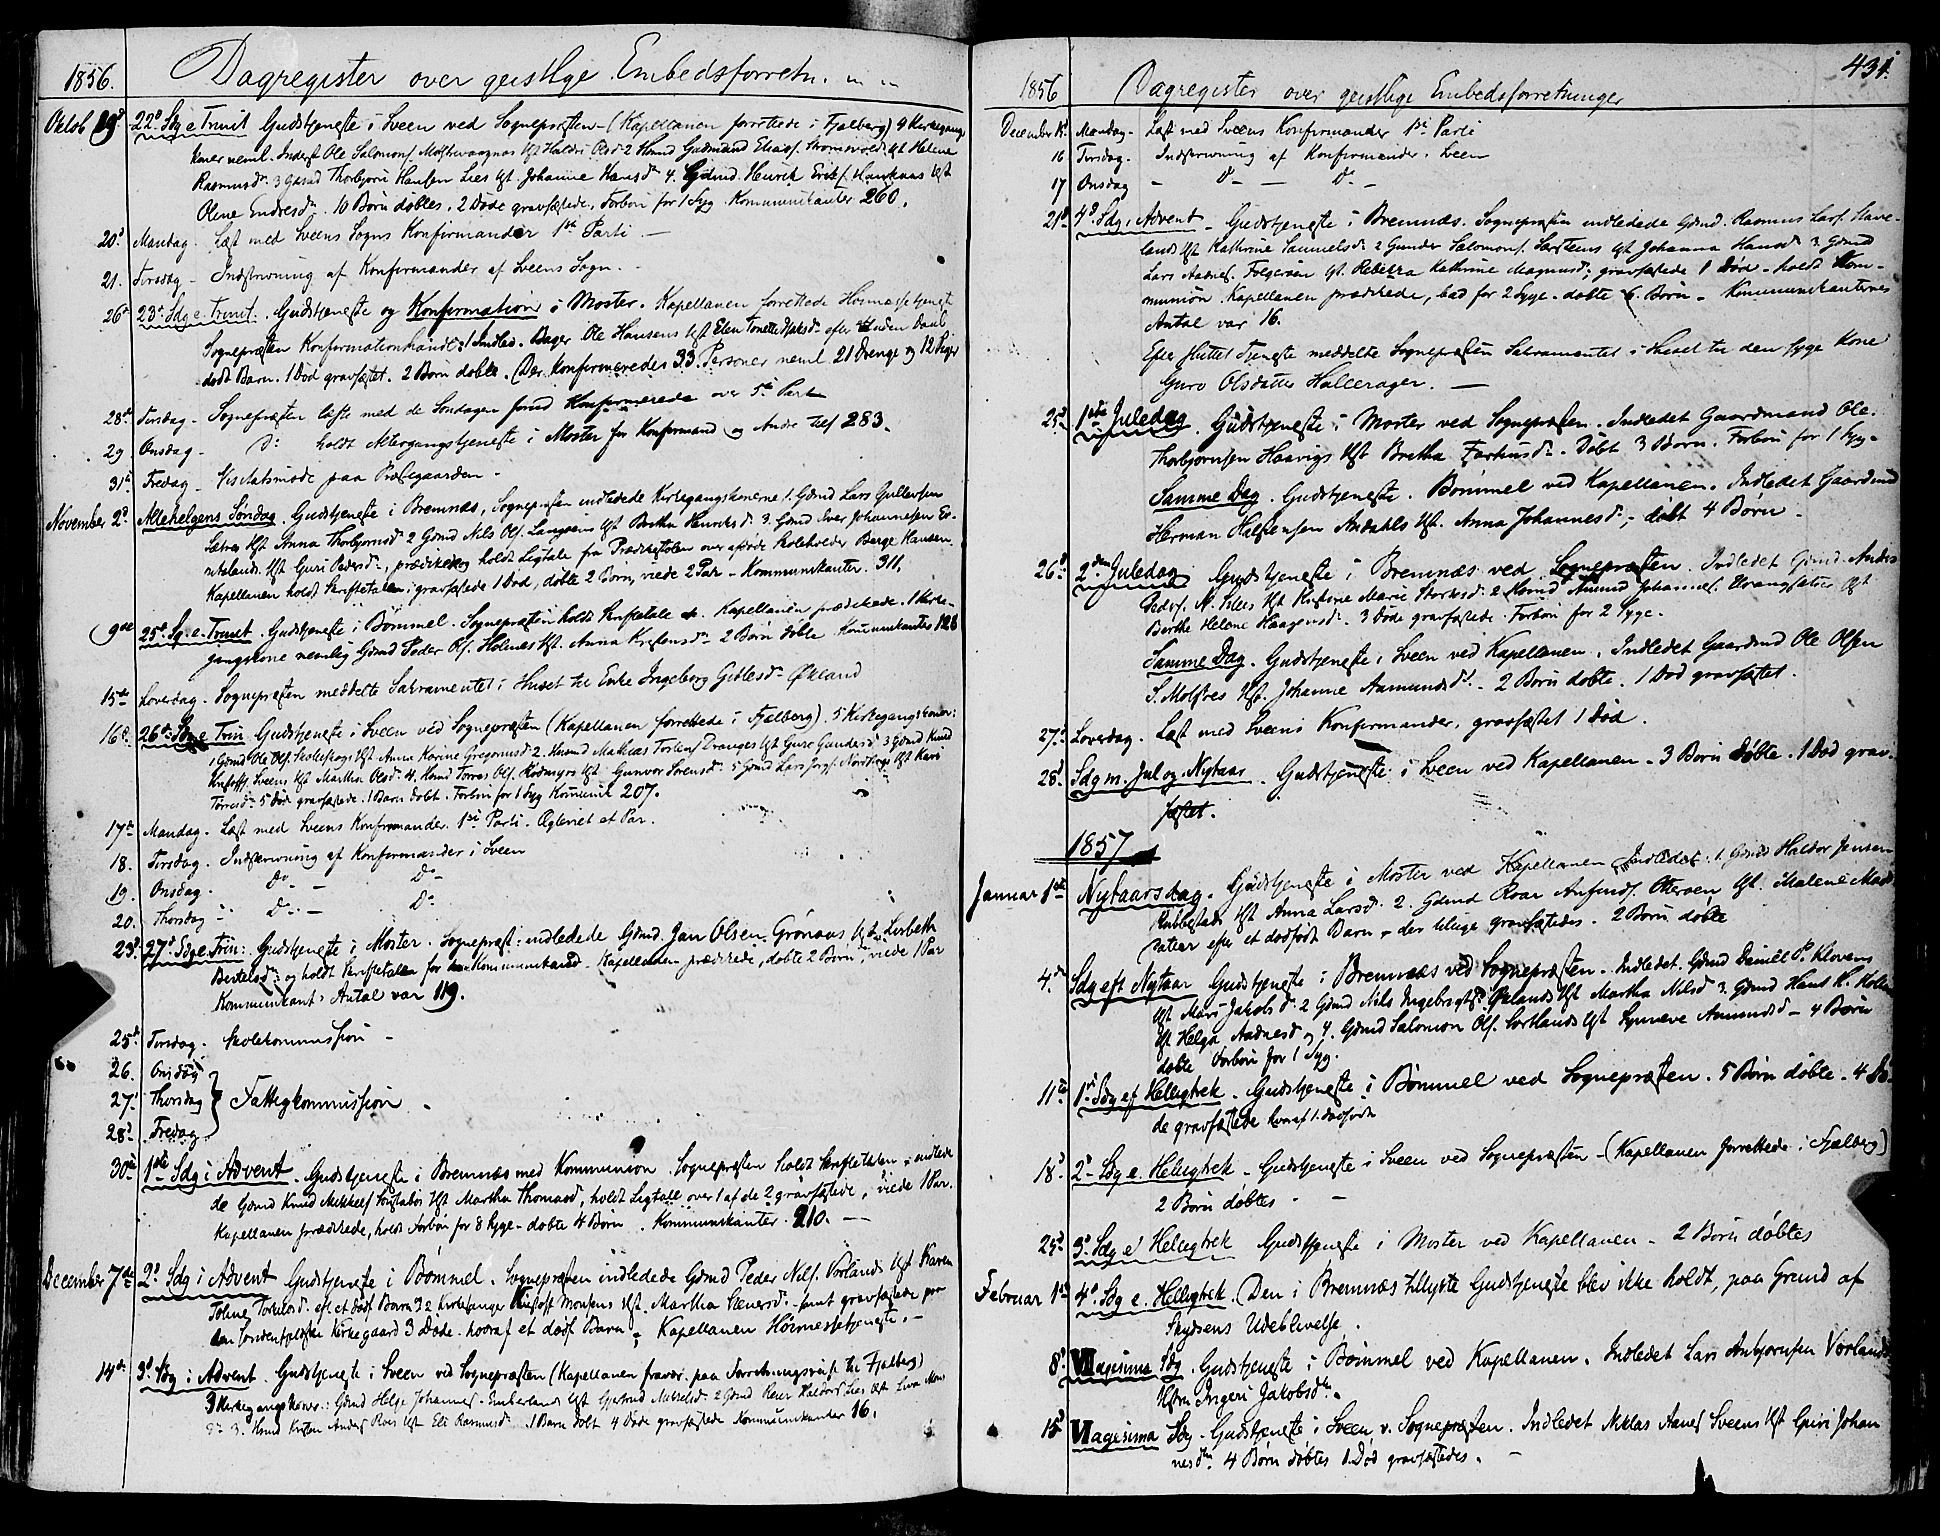 1856. Dagregister over geistlige Embedsforretn.
Oktob 19d 22d Sdg e Trinit Gudstjeneste i Sveen ved Sognepræsten - (Kapellanen forrettede i Fjelberg) 4 Kirkegangs
koner neml. Inderst Ole Salomons. Hst 2 Husmd Gudmund Eliass. Hst Helene
Rasmusdr 3 Gaardmd Thorbjørn Hansen Lies Hst Johanne Hansdr 4. Gdmd. Henrik Eriks. Hst
Oline Endresdr. 10 Børn døbtes. 2 Døde gravfæstede. Forbøn for 1 Syg. Kommunikanter 260.
20d Mandag. Læst med Sveens Sogns Konfirmander 1ste Parti -
21. Tirsdag - Indskrivning af Konfirmander af Sveens Sogn. -
26d 23d Sdg e Trinit. Gudstjeneste og Konfirmation i Moster. Kapellanen forrettede Høimessetjeneste
Sognepræsten Konfirmationshandl: 1 Indled. Bager Ole Hansens Hst Elen Tonette efter uden Daab
dødt Barn. 1 Død gravfæstet. 2 Børn døbte. (Der konfirmeredes 33 Personer neml 21 Drenge og 12 Piger
28de Tirsdag - Sognepræsten læste med de Søndagen forud Konfirmerede over 5te Part
29 Onsdag - Do holdt Altergangstjeneste i Moster for Konfirmand og Andre tils 283.
31te Fredag - paa Præstegaarden -
November 2d Allehelgens Søndag. Gudstjeneste i Bremnæs, Sognepræsten indledede Kirkegangskonerne 1. Gdmd Lars Gullersen
Hst Anna Thorbjørnsdr 2 Gdmd Nils Ols. Hst Bertha Henriksdr 3. Gdmd Iver Johannesen Es-
Hst Guri Pedersdr, prædikede og holdt Ligtale fra Prædikestolen over afdøde Skoleholder Børge Hansen.
Kapellanen holdt Skriftetalen, gravfæstede 1 Død, døbte 2 Børn, viede 2 Par - Kommunikanter. 311.
9de 25d S. e. Trinit. Gudstjeneste i Bømmel. Sognepræsten holdt Skriftetale Kapellanen prædikede. 1 Kirke-
gangskone nemlig Gdmd Peder Ols. Holmes Hst. Anna 2 Børn døbte Kommunikanter 128
15de Løverdag. Sognepræsten meddelte Sakramentet i Huset til Enke Ingeborg Gitlesdr Økland
16d. 26d Sdg e Trin Gudstjeneste i Sveen ved Sognepræsten (Kapellanen forrettede i Fjelberg). 5 Kirkegangskoner:
1 Gdmd Ole Ols. Hst Anna Karine Gregoriusdr 2. Husmd Mathias Hst Guro Gundersdr 3 Gdmd Knud
Sveens Hst Martha Olsdr 4. Husmd Tørres Ols. Hst Gunvor Sørensdr 5 Gdmd Lars Hst Kari
Tørresdr 5 Døde gravfæstede. 1 Barn døbt. Forbøn for 1 Syg Kommunik 207.
17de Mandag. Læst med Sveens Konfirmander. 1ste Parti. Ægteviet et Par.
18. Tirsdag. Indskrivning af Konfirmander i Sveen
19. Onsdag. Do - Do -
20. Thorsdag - Do - Do
23d. 27d Sdg e Trin: Gudstjeneste i Moster. Sognepræst: indledede Gdmd. Jan Olsen Grønaas Hst Lisbeth
Bertelsdr og holdt Skriftetalen for Kommunikand. Kapellanen prædikede, døbte 2 Børn, viede 1 Par
Kommunikant. Antal var 119.
25de Tirsdag. Skolekommission -
26. Onsdag
27d Thorsdag } Fattigkommission -
28d Fredag
30te 1ste Sdg i Advent. Gudstjeneste i Bremnæs med Kommunion. Sognepræsten holdt Skriftetalen, indlede
de Gdmd Knud Mikkels Hst Martha Thomasdr, holdt Ligtale over 1 af de 2 gravfæstede, viede 1 Par.
Kapellanen prædikede, holdt Forbøn for 8 Syge - døbte 4 Børn. Kommunikanter. 210. -
December 7de 2d Sdg i Advent Gudstjeneste i Bømmel. Sognepræsten indledede Gdmd Peder Nils. Vorlands Hst Karen
eft et dødf Barn Monsens Hst. Martha samt gravfæstede paa
Kirkegaard 3 Døde. hvoraf et dødf Barn, Kapellanen Høimessetjeneste. -
14de 3d Sdg i Advent. Gudstjeneste i Sveen ved Sognepræsten (Kapellanen fravær. paa Forretningsreise til Fjelberg)
3 Kirkegangskoner: Gdmd Helge Johannes. Emberlands Hst Gjertrud Mikkelsdr 2 Gdmd Peder Haldors. Lies Hst Siva Mons
dr 3. Husmd Kristen Anders Hst Eli Rasmusdr. 1 Barn døbt 4 Døde gravfæstede Kommunikanter 16.
431.
1856 Dagregister over geistlige Embedsforretninger
December 15d Mandag - Læst med Sveens Konfirmander 1ste Parti
16 Tirsdag. Indskrivning af Konfirmander. Sveen
17 Onsdag - Do - Do -
21d 4d Sdg i Advent - Gudstjeneste i Bremnæs. Sognepræsten indledede Gdmd. Rasmus Lars. Stave-
lands Hst Kathrine Samuelsdr 2 Gunder Salomons. Hst Johanna Hansdr 3. Gdmd
Lars Aadnes. Folgerøen Hst. Rebekka Kathrine Magnusdr; gravfæstede 1 Død - holdt Kom-
munion. Kapellanen prædikede, bad for 2 Syge - døbte 6 Børn - Kommunikanternes
Antal var 16.
Efter sluttet Tjeneste meddelte Sognepræsten Sakramentet i Huset til den syge Kone
Guro Olsdatter Hallerager. -
25d 1ste Juledag. Gudstjeneste i Moster ved Sognepræsten. Indledet Gaardmand Ole
Thorbjørnsen Haavigs Hst Bretha Døbt 3 Børn. Forbøn for 1 Syg.
Samme Dag. Gudstjeneste. Bømmel ved Kapellanen. Indledet Gaardmd
Herman Halstensen Andahls Hst. Anna Johannesdr - døbt 4 Børn.
26d 2den Juledag Gudstjeneste i Bremnæs ved Sognepræsten. Indledet Gdmd. Anders
Peders. N. Hst Kristine Marie 2 Husmd Amund Johannes. Hst
Berthe Helene Haagensdr. 3 Døde gravfæstede. Forbøn for 2 Syge.
Samme Dag. Gudstjeneste i Sveen ved Kapellanen. Indledet Gaardmd Ole Olsen
S. Hst. Johanne Aamundsdr. 2 Børn døbte. 1 Død gravfæstet.
27d Løverdag. Læst med Sveens Konfirmander, gravfæstet 1 Død.
28d Sdg m. Jul og Nytaar. Gudstjeneste i Sveen ved Kapellanen - 3 Børn døbte. 1 Død grav-
fæstet.
1857
Januar 1ste Nytaarsdag. Gudstjeneste i Moster ved Kapellanen Indledet: 1. Gdmd Haldor Jensen
Rubbestads Hst Anna Larsdr. 2. Gdmd Roar Otterøen Hst. Malene Mads
datter efter et dødfødt Barn - der tillige gravfæstedes. 2 Børn døbte
4. de Sdg eft Nytaar Gudstjeneste i Bremnæs ved Sognepræsten. Indledet. Gdmd Daniel P. Klovens
Hst Mari Jakobsdr 2 Gdmd Nils Ingebrigts. Øklands Hst Martha Nilsdr 3. Gdmd Hans K.
Hst Helga Aadnesdr og 4. Gdmd Salomon Ols. Sortlands Hst Synneve Aamundsdr - 4 Børn
døbte Forbøn for 1 Syg.
11te 1d Sdg ef Helligtrek. Gudstjeneste i Bømmel ved Sognepræsten. 5 Børn døbte. 4 Dø-
de gravfæstede hvoraf 1. dødfødt
18d 2d Sdg e. Helligtrek - Gudstjeneste i Sveen ved Sognepræsten - (Kapellanen forrettede i Fjelberg)
2 Børn døbtes -
25d 3d. Sdg e Helligtrek Gudstjeneste i Moster ved Kapellanen - 2 Børn døbtes
Februar 1ste 4d. Sdg e. Helligtrek. (Den i Bremnæs tillyste Gudstjeneste blev ikke holdt, paa Grund af
Skydsens Udeblivelse.
8d. Sdg. Gudstjeneste i Bømmel ved Kapellanen. Indledet Lars Anbjørnsen Vorlands
Hstru Ingeri Jakobsdtr.
15d Sdg - Gudstjeneste i Sveen v. Sognepræsten. Indledet Niklas Sveens Hst Guri Johan
nesdtr 4 Børn døbtes 1 Død gravfæstedes. -